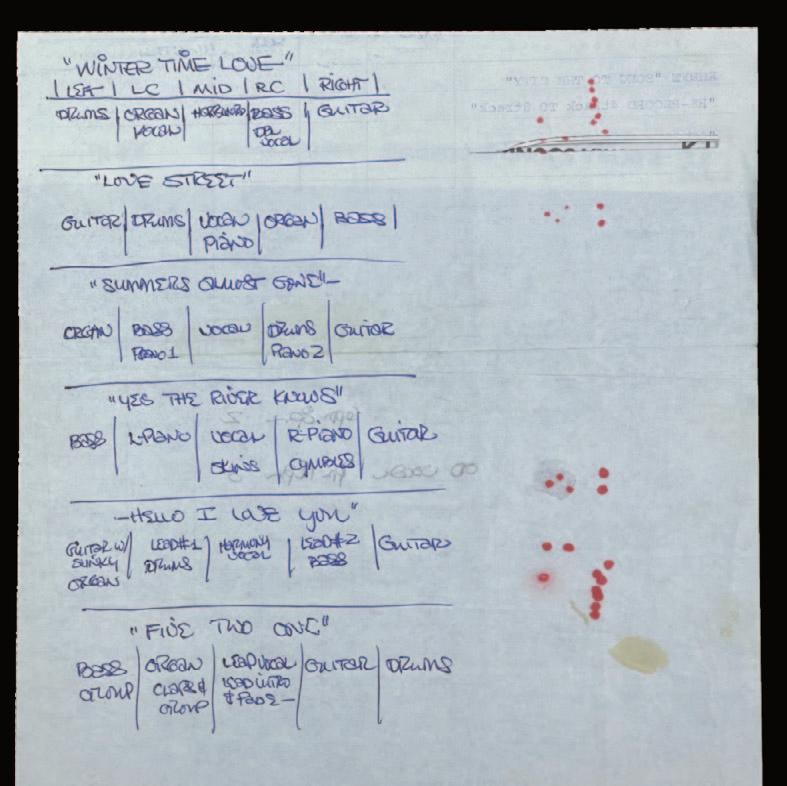 "WINTER TIME LOVE"
| LEFT | LC | MID | RC | RIGHT |
DRUMS | ORGAN | | BASS | GUITAR
VOCAL DBL
VOCAL
"LOVE STREET"
GUITAR | DRUMS | VOCAL | ORGAN | BASS |
PIANO
"SUMMERS ALMOST GONE"—
ORGAN | BASS | VOCAL | DRUMS | GUITAR
PIANO 1 PIANO 2
"YES THE RIVER KNOWS"
BASS | L-PIANO | VOCAL | R-PIANO | GUITAR
SKINS CYMBLES
—HELLO I LOVE YOU"
GUITAR W/ | LEAD#1 | HARMONY | LEAD#2 | GUITAR
FUNKY DRUMS VOCAL BASS
ORGAN
"FIVE TWO ONE"
BASS | ORGAN | LEAD VOCAL | GUITAR | DRUMS
GROUP CLAPS & LEAD INTRO
GROUP & FADE—